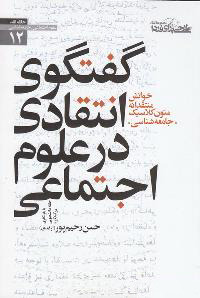 گفتگوی
انتقادی
در علوم
اجتماعی
خوانش
منتقدانهٔ
متون کلاسیک
«جامعه‌شناسی»
حسن رحیم‌پور (ازغدی)
۱۲